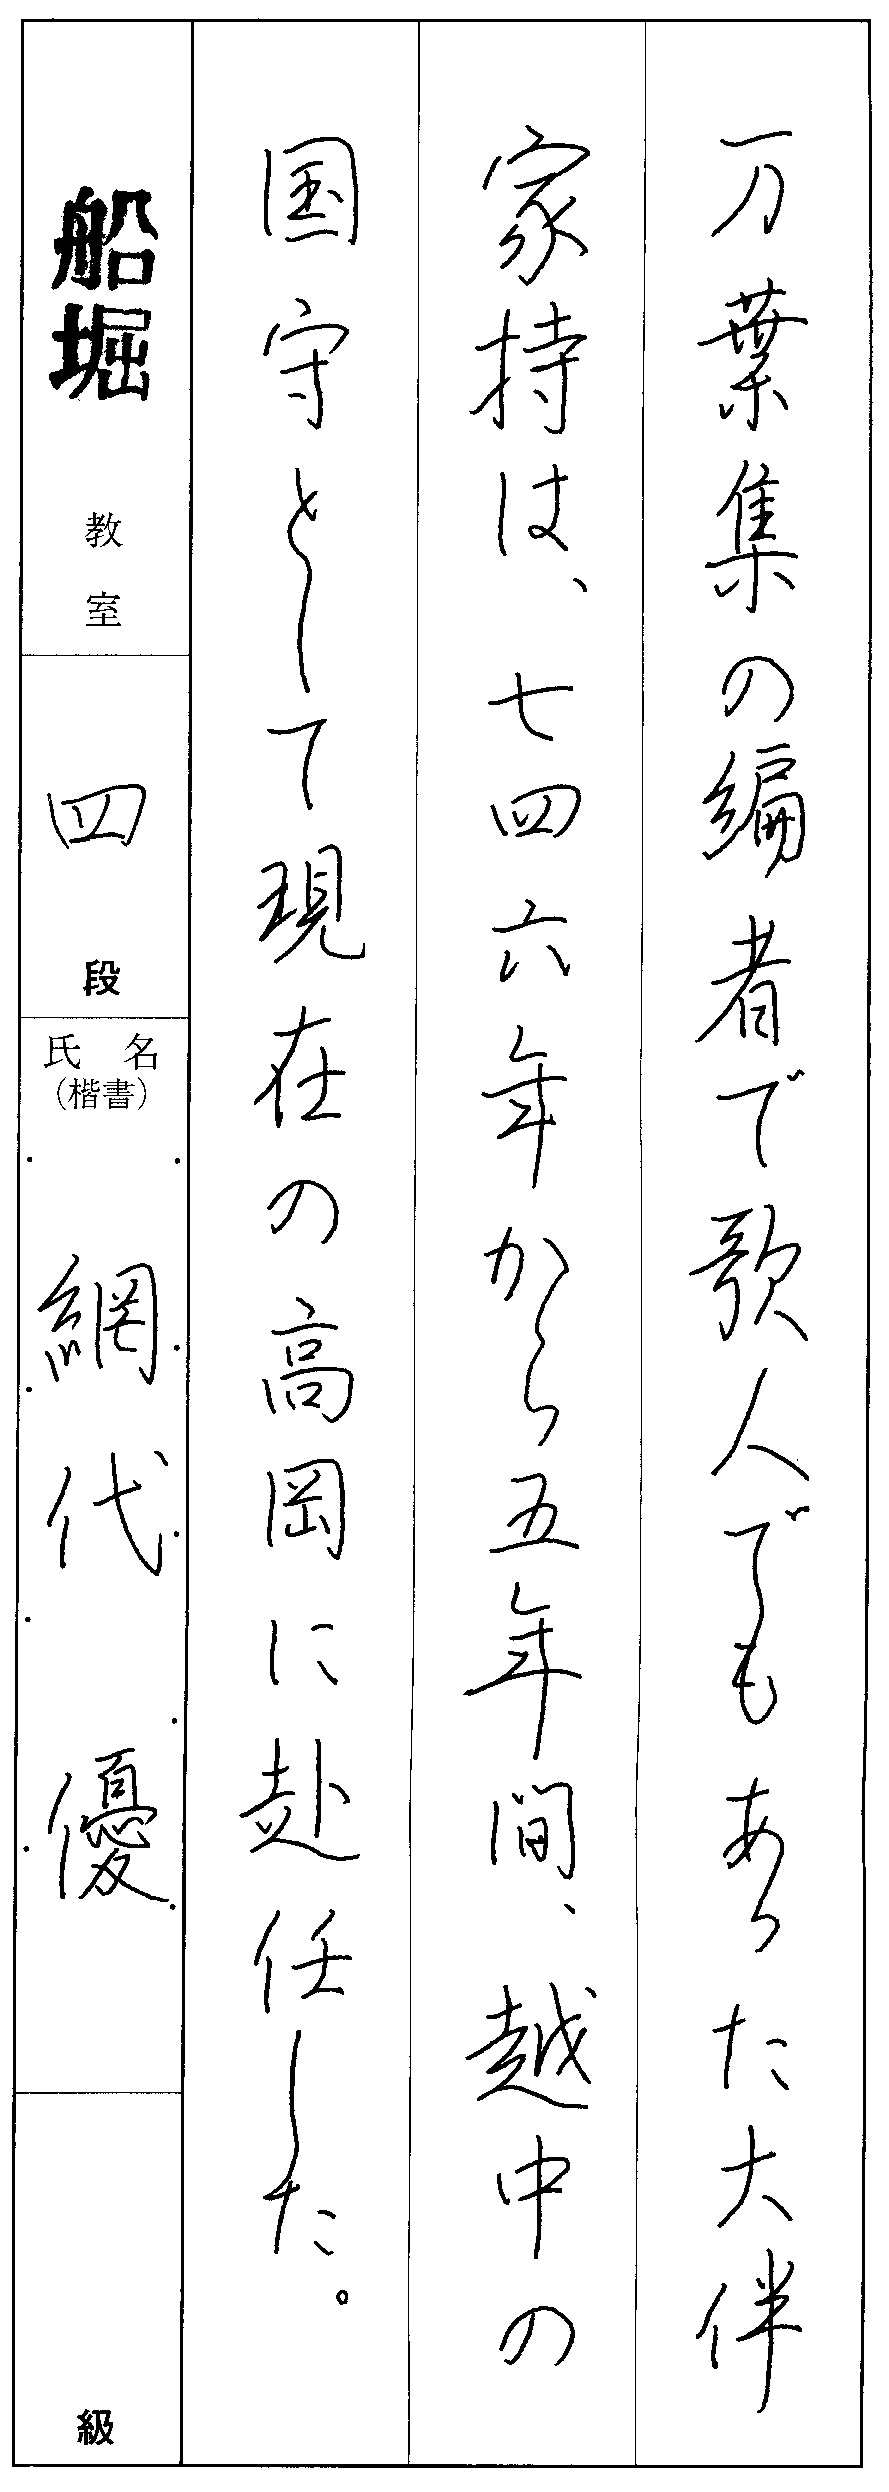 万葉集の編者で歌人でもあった大伴
家持は、七四六年から五年間、越中の
国守として現在の高岡に赴任した。
船堀教室
四段
氏名
(楷書)
網代優
級